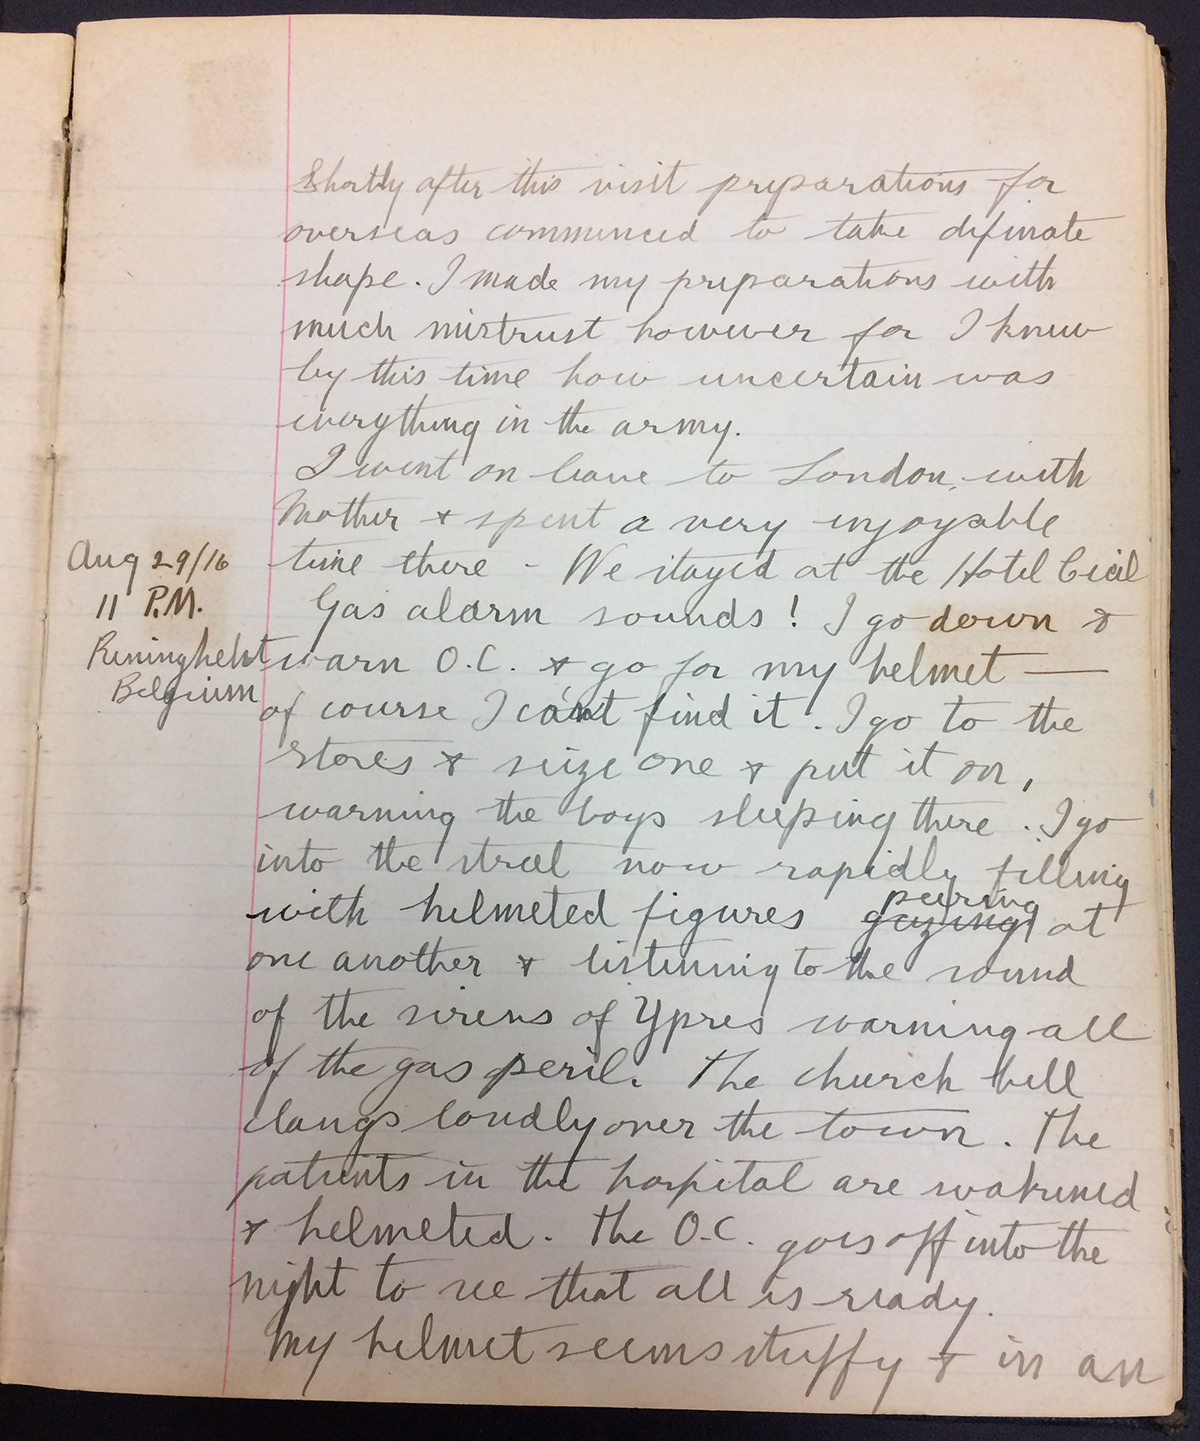 Shortly after this visit preparations for
overseas commenced to take definate
shape. I made my preparations with
much mistrust however for I knew
by this time how uncertain was
everything in the army.
I went on leave to London, with
Mother & spent a very enjoyable
time there - We stayed at the Hotel Cecil
Aug 29/16
11 P.M.
Reninghelst
Belgium
Gas alarm sounds! I go down &
warn O.C. & go for my helmet —
of course I can't find it. I go to the
stores & seize one & put it on,
warning the boys sleeping there. I go
into the street now rapidly filling
with helmeted figures gazing peering at
one another & listening to the sound
of the sirens of Ypres warning all
of the gas peril. The church bell
clangs loudly over the town. The
patients in the hospital are wakened
& helmeted. The O.C. goes off into the
night to see that all is ready.
My helmet seems stuffy & in an